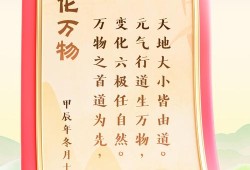 化万物
万物之首道为先，
变化六极任自然。
元气行道生万物，
天地大小皆由道。
甲辰年冬月十